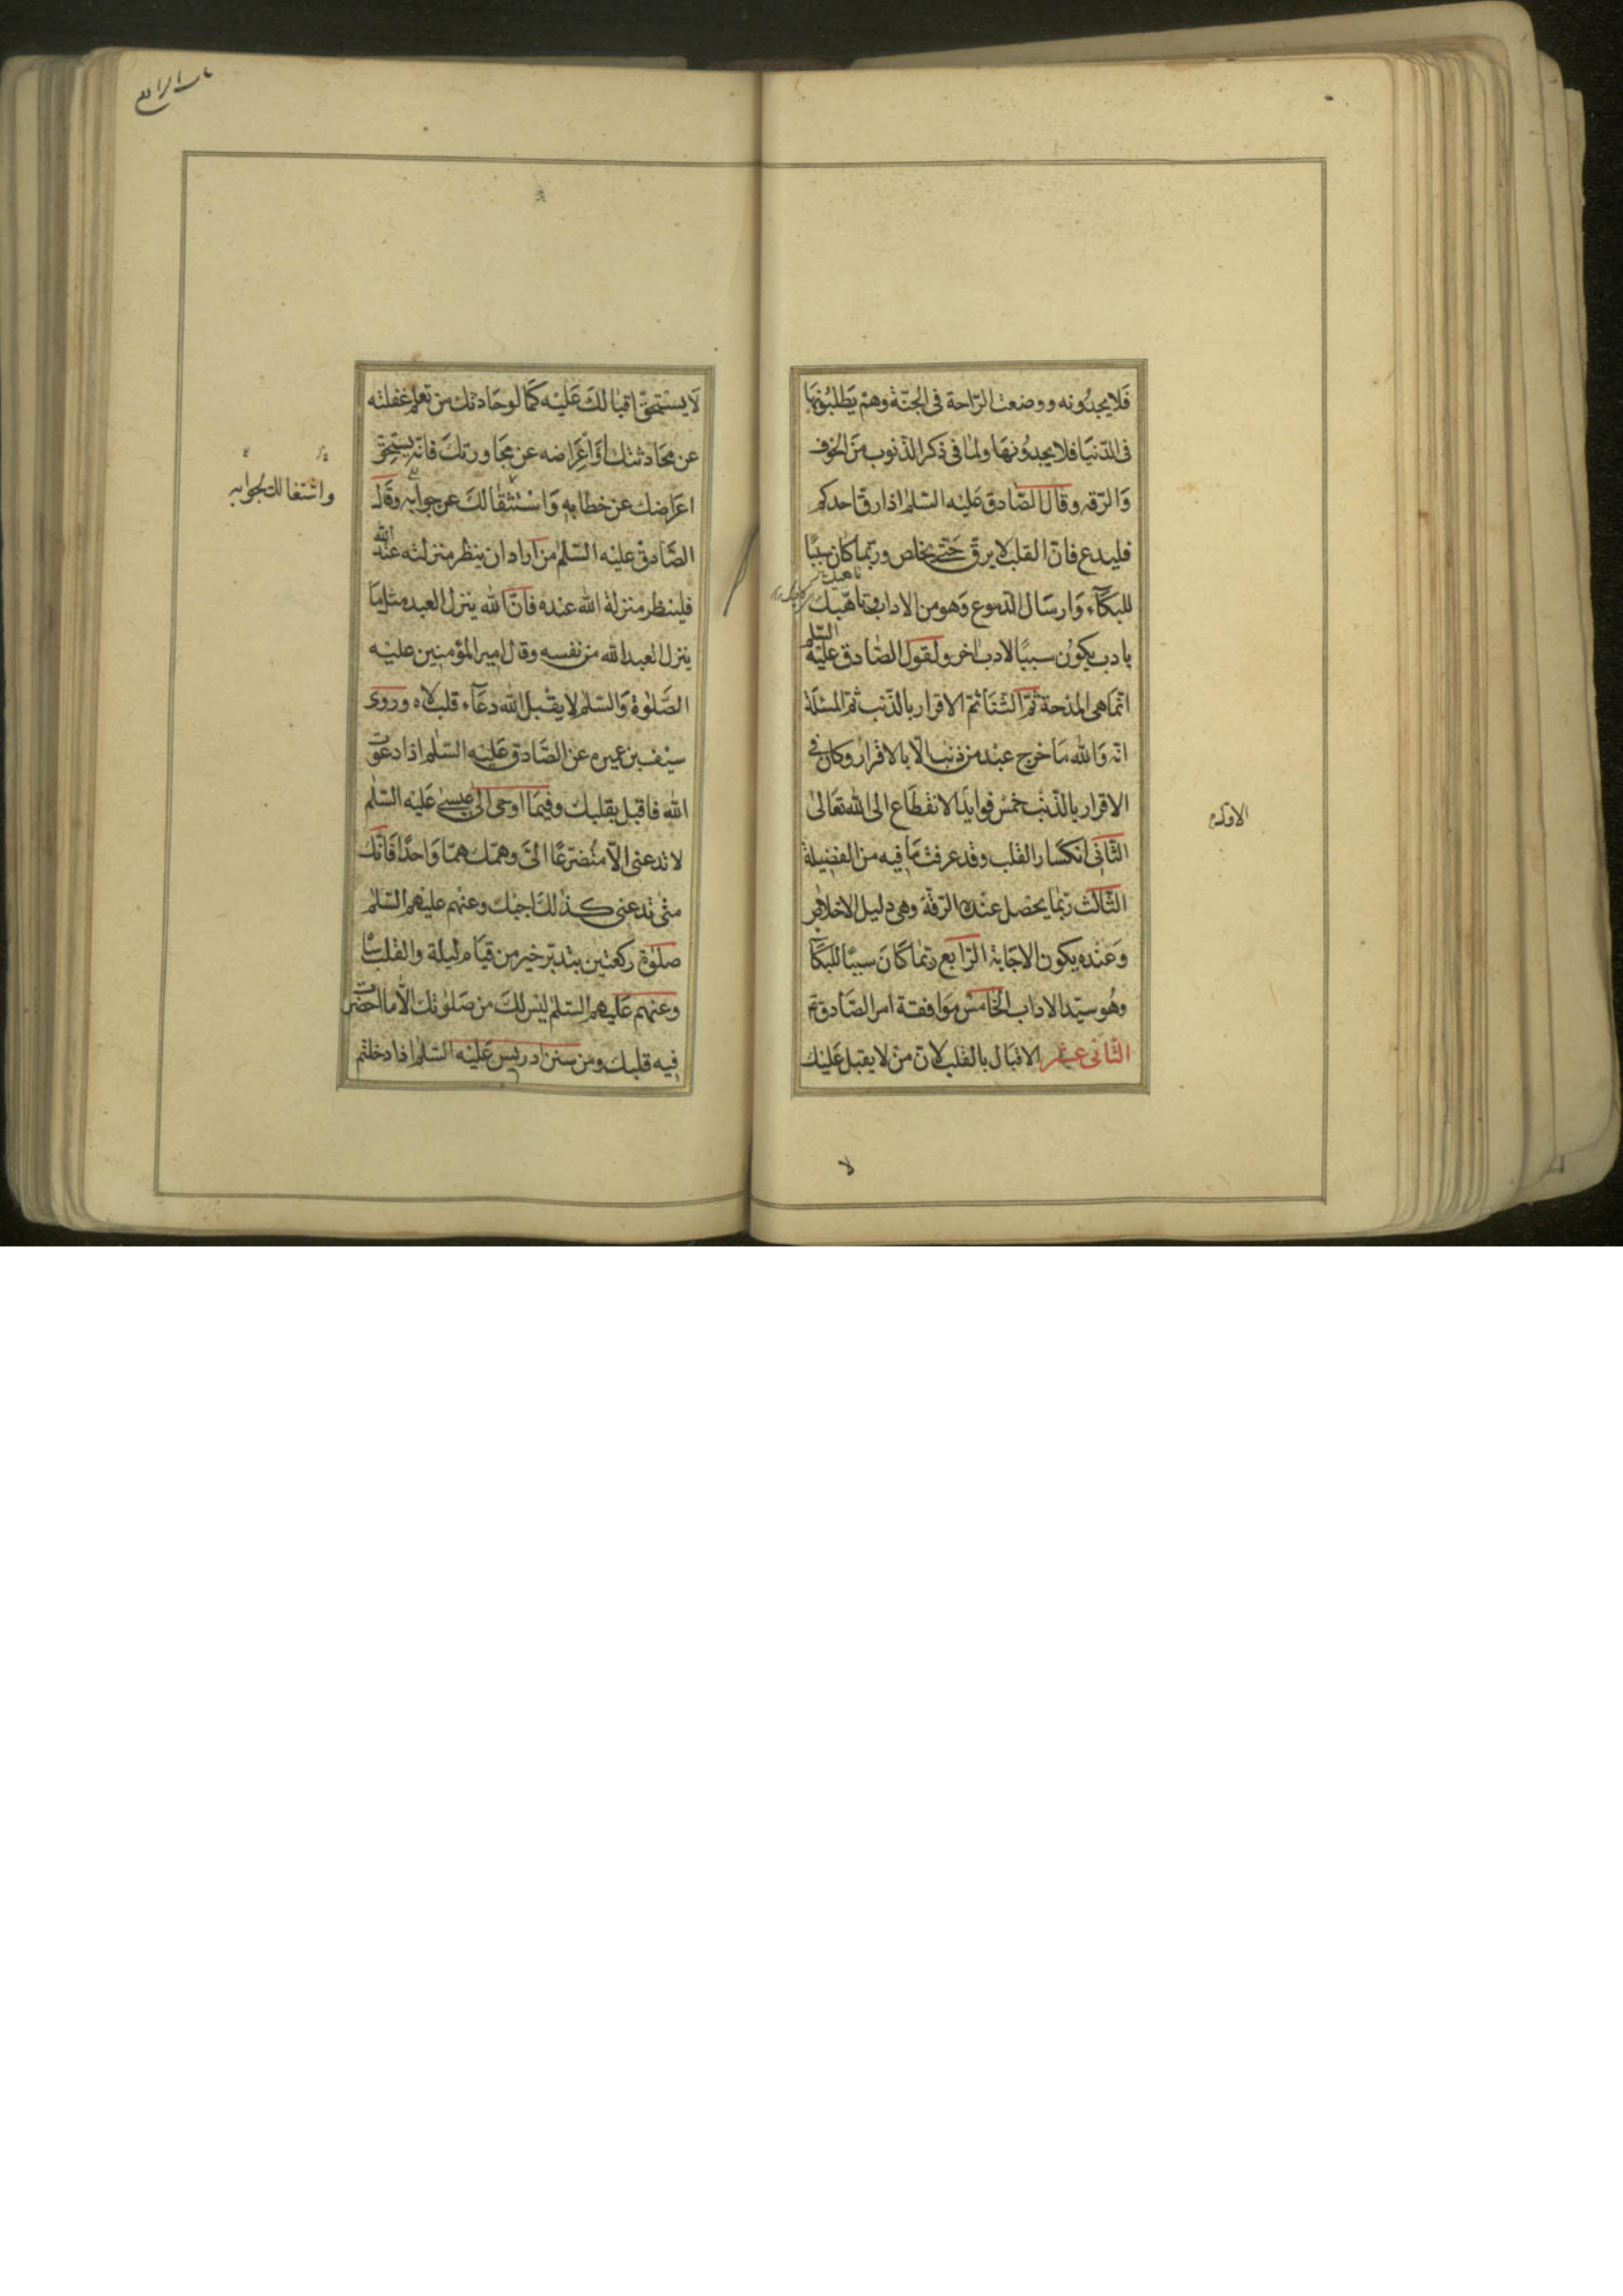 فلا يجدونه ووضعت الراحة فى الجنّة وهم يطلبونها
فى الدّنيا فلا يجدونها ولما فى ذكر الذنوب من الخوف
وَالرّقه وقال الصّادق عليه السّلم اذا رقّ احدكم
فليدع فانّ القلب لا يرقّ حتّى يخلص وربّما كان سببًا
للبكآء وَارسَال الدموع وَهو من الاداب وناهيك
بادب يكون سببًا لادب اخر ولقول الصّادق عليه السّلم
انّما هى المدحة ثمّ الثّنا ثمّ الاقرار بالذّنب ثمّ المسئلة
انّه وَالله مَا خرج عبْد من ذنب الّا بالاقرار وكان فى
الاقرار بالذّنب خمس فوايد الانقطاع الى الله تعَالىٰ
الاول
الثّانى انكسار القلب وقد عرفت ما فيه من الفضيلة
الثّالث ربّما يحصل عنده الرّقة وهى دليل الاخلاص
وَعنْده يكون الاجَابة الرّابع ربّما كَانَ سببًا للبكآ
وهُو سيّد الاداب الخامس موَافقة امر الصّادق ثم
الثّانى عشر الاقبَال بالقلب لانّ منْ لا يقبل عَليْك
لا
باب الرابع
لَا يستحقّ اقبالكَ عَليْه كَمَا لو حَادثك من تعلم غفلته
عن محَادثتك وَاعْرَاضه عن محَاورتكَ فانّه يستحِقّ
اعرَاضك عن خطابه وَاسْتثقالكَ عن جوابه وقَال
واشتغالك لجوابه
الصّادق عليْه السّلم من ارَاد ان ينظر منزلته عند الله
فلينظر منزلة الله عنده فانّ الله ينزل العبد مثل مَا
ينزل العبد الله من نفسه وقال امير المؤمنين عليْه
الصَّلوٰة وَالسّلم لا يقبل الله دعَآء قلب لاه وروى
سيْف بن عميره عن الصَّادق عليه السّلم اذا دعوت
الله فاقبل بقلبك وفيمَا اوحى الى عيسىٰ عَليْه السّلم
لا تدعنى الّا متضرّعًا الىّ وهمّك همّا وَاحدًا فَانّك
متى تدعنى كذلكَ اجبْك وعنهم عليْهم السّلم
صلوٰة ركعتين بتدبّر خير من قيَام ليلة والقلب سَا
وعنهم عَليهم السّلم ليْس لكَ من صَلوٰتك الّا ما احضرت
فِيه قلبك ومن سنن ادريس عَليْه السّلم اذا دخلتم